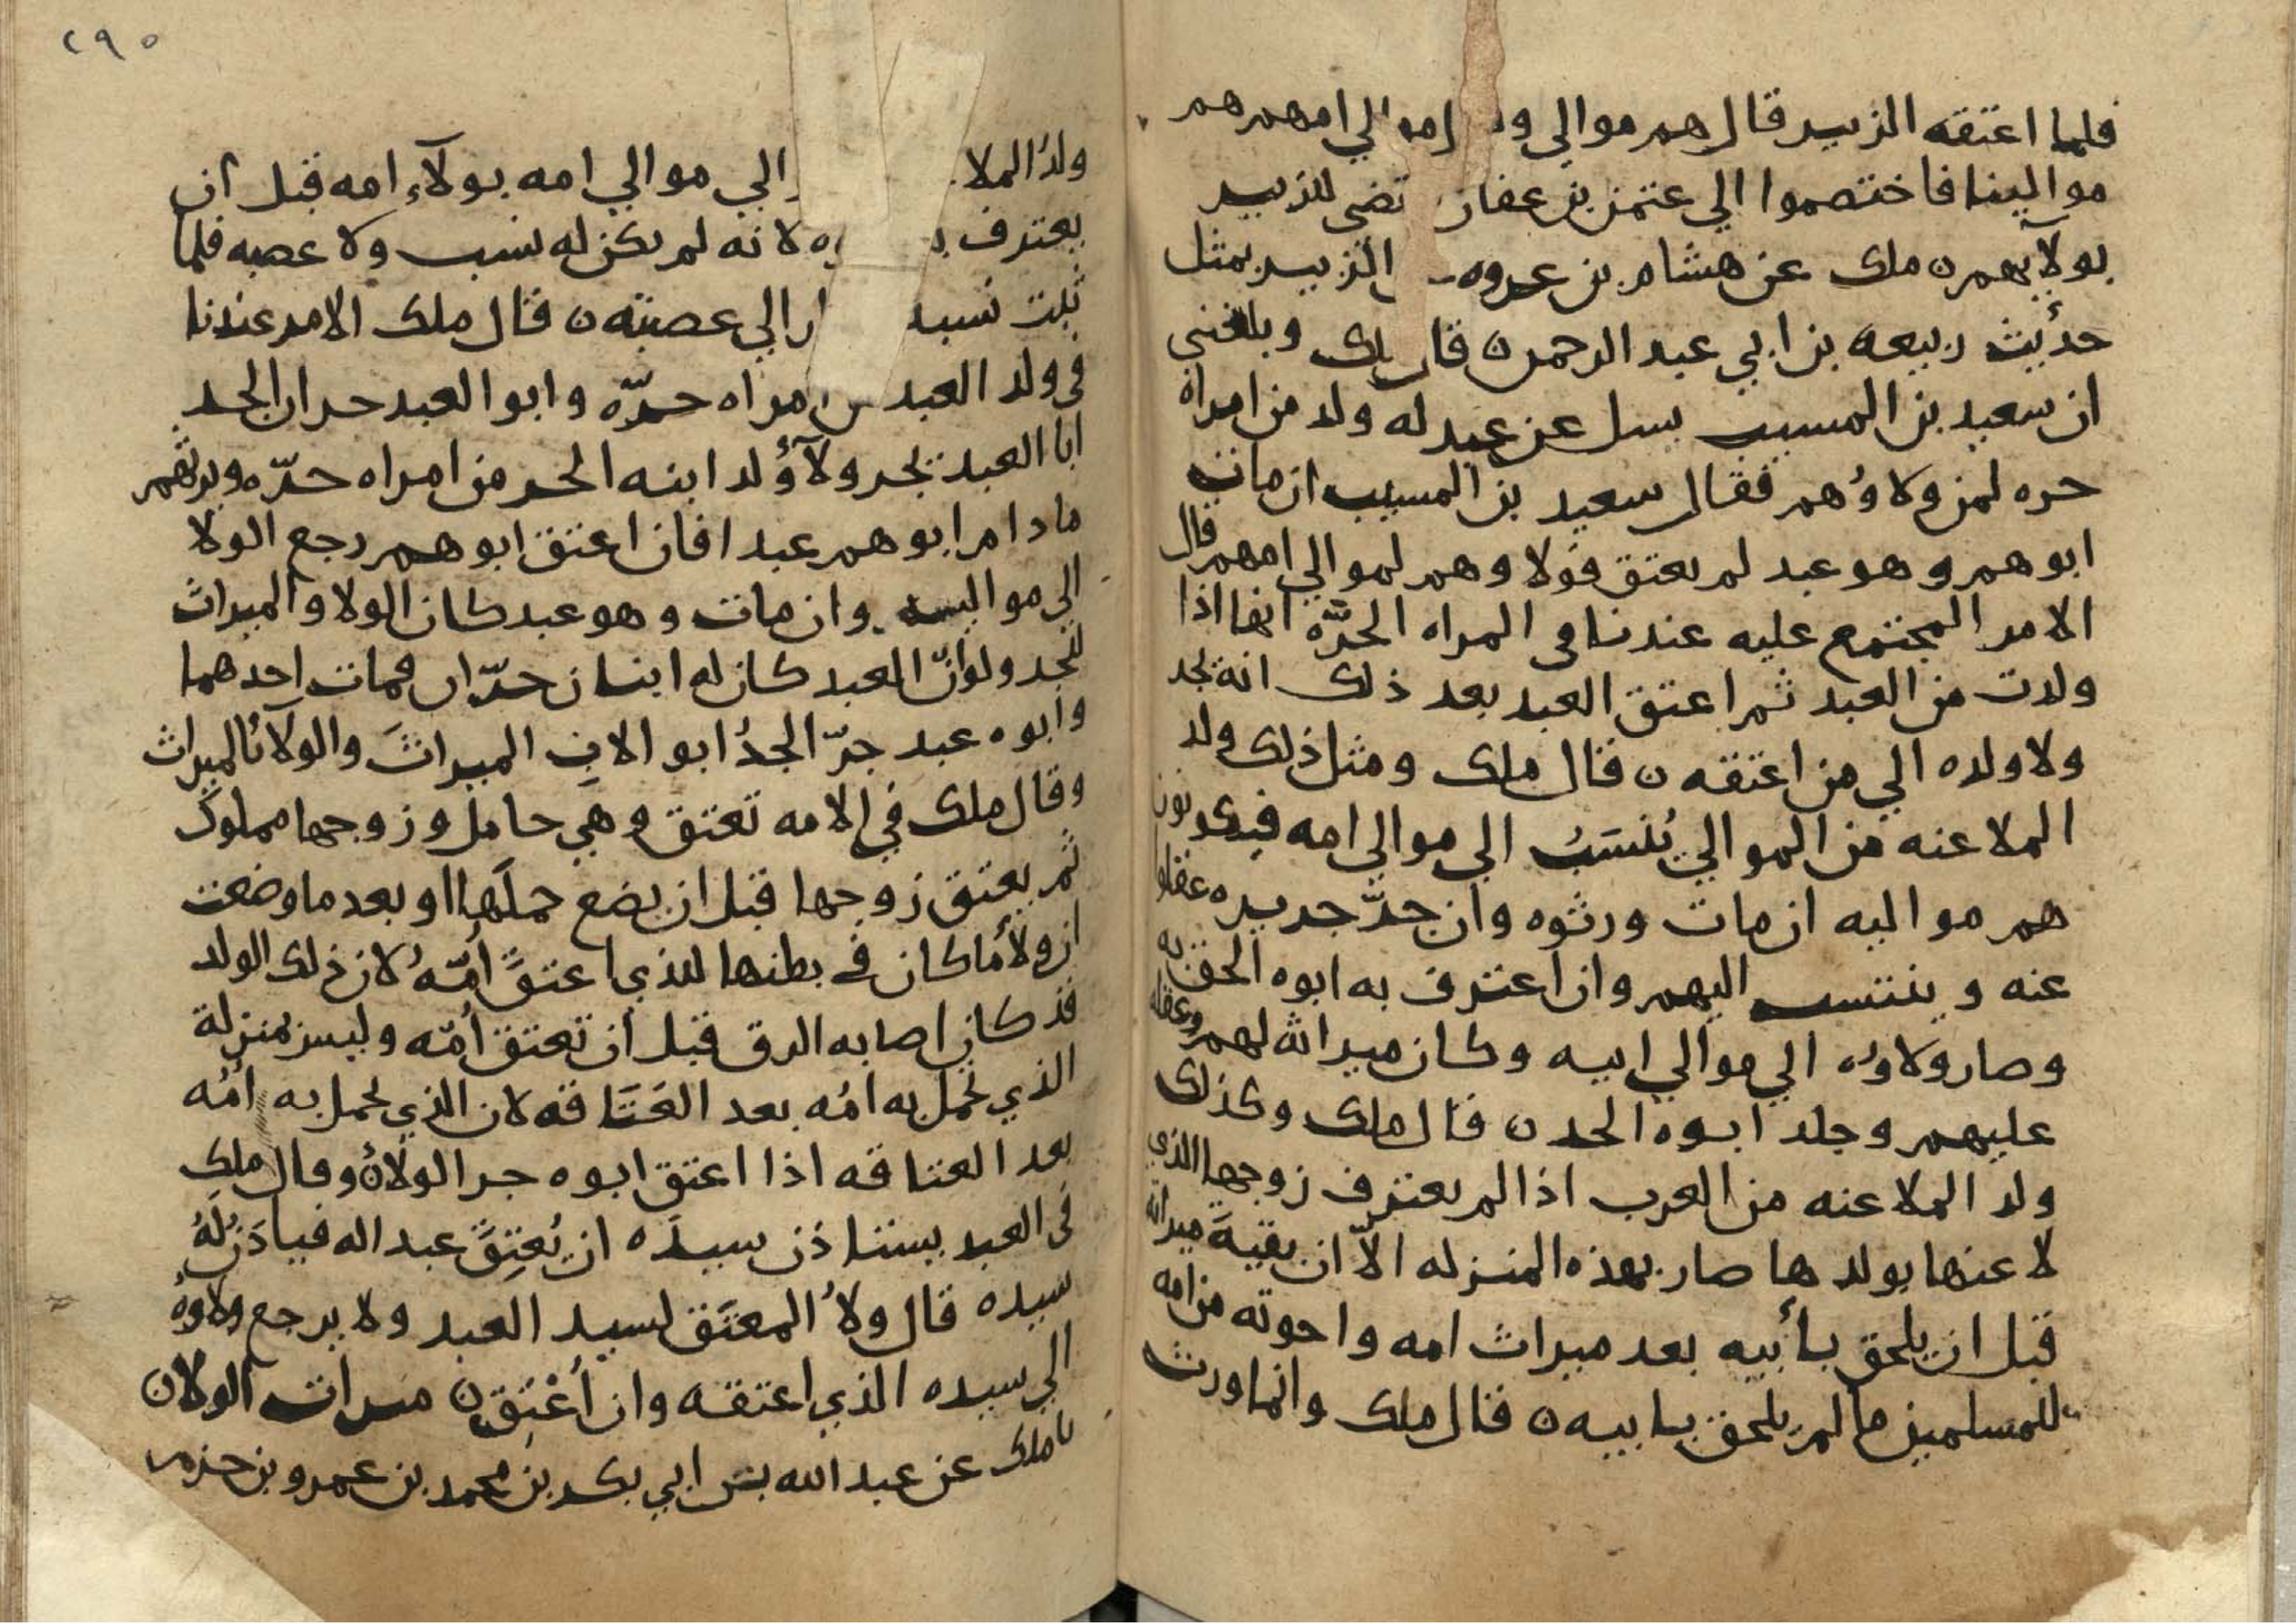 فلما اعتقه الزبير قال هم موالي امهم هم
موالينا فاختصموا الي عثمن بن عفان للزبير
بولايهم ن ملك عن هشام بن عروه الزبير بمثل
حديث ربيعه بن ابي عبد الرحمن ن وبلغني
ان سعيد بن المسيب سل عن عبد له ولد من امراه
حره لمن ولاوهم فقال سعيد بن المسيب ان مات
ابوهم وهو عبد لم يعتق فولاوهم لموالي امهم قال
الامر المجتمع عليه عندنا في المراه الحرّه انها اذا
ولدت من العبد ثم اعتق العبد بعد ذلك انه يجد
ولا ولده الي من اعتقه ن قال ملك ومثل ذلك ولد
الملاعنه من الموالي يُنسَبُ الي موالي امه فيكونون
هم مواليه ان مات ورثوه وان جرّ جريره عقلوا
عنه وينتسب اليهم وان اعترف به ابوه الحق به
وصار ولاوه الي موالي ابيه وكان ميراثه لهم وعقله
عليهم وجلد ابوه الحد ن قال ملك وكذلك
ولد الملاعنه من العرب اذا لم يعترف زوجها الذي
لاعنها بولدها صار بهذه المنزله الاّ ان بقيةَ ميراثه
قبل ان يلحق بأبيه بعد ميراث امه واخوته من امه
للمسلمين ما لم يلحق بابيه ن قال ملك وانما ورث
٢٩٥
ولدُ الملا الي موالي امه بولآء امه قبل ان
يعترف لانه لم يكن له نسب ولا عصبه فلما
ثبت نسبه الي عصبته ن قال ملك الامر عندنا
في ولد العبد من امراه حرّه وابو العبد حر ان الجد
ابا العبد يجر ولآؤلد ابنه الحر من امراه حرّه ويرثهم
ما دام ابوهم عبدا فان اعتق ابوهم رجع الولا
الي مواليه وان مات وهو عبد كان الولا والميراث
للجد ولو انّ العبد كان له ابنان حرّان فمات احدهما
وابوه عبد جرّ الجدُ ابو الابِ الميراثَ والولا بالميراث
وقال ملك في الامه تعتق وهي حامل وزوجها مملوك
ثم يعتق زوجها قبل ان يضع حملَها او بعد ما وضعت
ان ولأ ما كان في بطنها للذي اعتقَ أُمّهُ لان ذلك الولد
قد كان اصابه الرق قبل أن تعتق أُمّه وليس بمنزلة
الذي تحمل به امُه بعد العَتَاقه لان الذي تحمل به أُمُه
بعد العتاقه اذا اعتق ابوه جر الولاَهُ وقال ملك
في العبد يستاذن سيدَه ان يُعتِقَ عبدا له فياذَن لَهُ
سيده قال ولأُ المعتَق لسيد العبد ولا يرجع ولاوهُ
الي سيده الذي اعتقه وان أُعْتِق ن ميراث الولا ن
نا ملك عن عبد الله بن ابي بكر بن محمد بن عمرو بن حزم